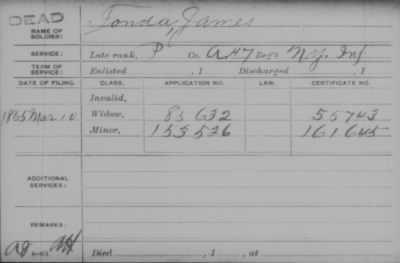 DEAD
NAME OF SOLDIER: Fonda, James
SERVICE: Late rank, P Co. A 47 Reg't N.Y. Inf
TERM OF SERVICE: Enlisted , 1 Discharged , 1
DATE OF FILING. CLASS. APPLICATION NO. LAW. CERTIFICATE NO.
Invalid,
1865 Mar 10 Widow, 85 632 55743
Minor, 153,536 161645
ADDITIONAL SERVICES:
REMARKS:
Died , 1 , at